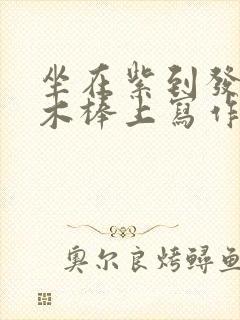 坐在紫到發
木棒上寫作
奥尔良烤鲟鱼